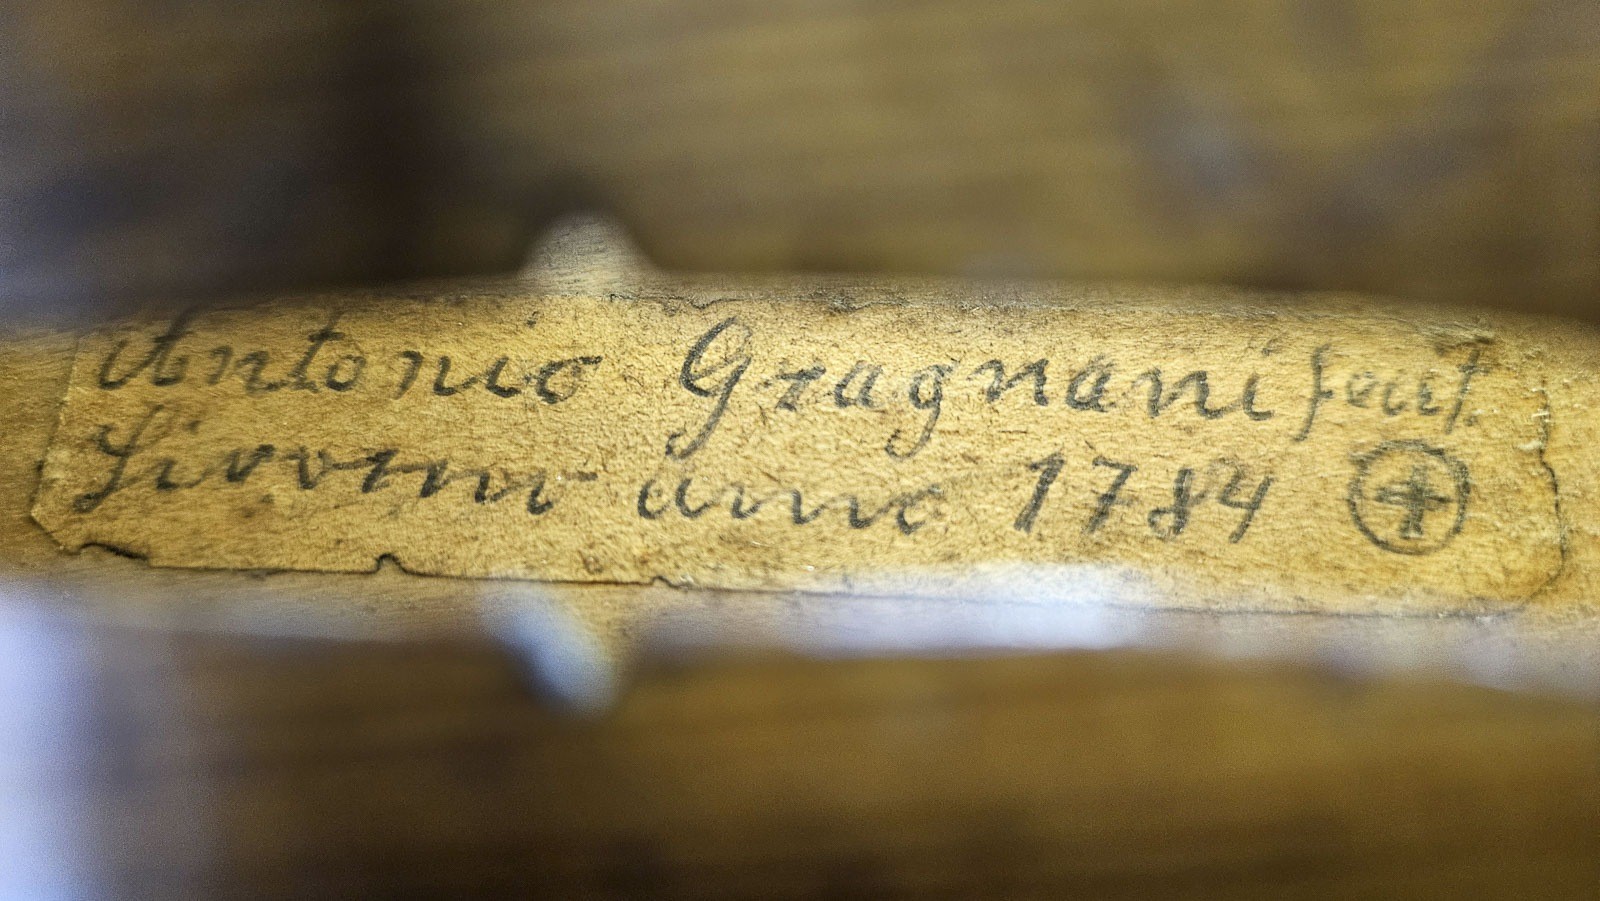 Antonio Gragnani fecit
Livorno anno 1784